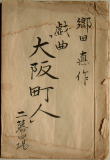 郷田悳作
戯曲
"大阪町人"
二幕四場